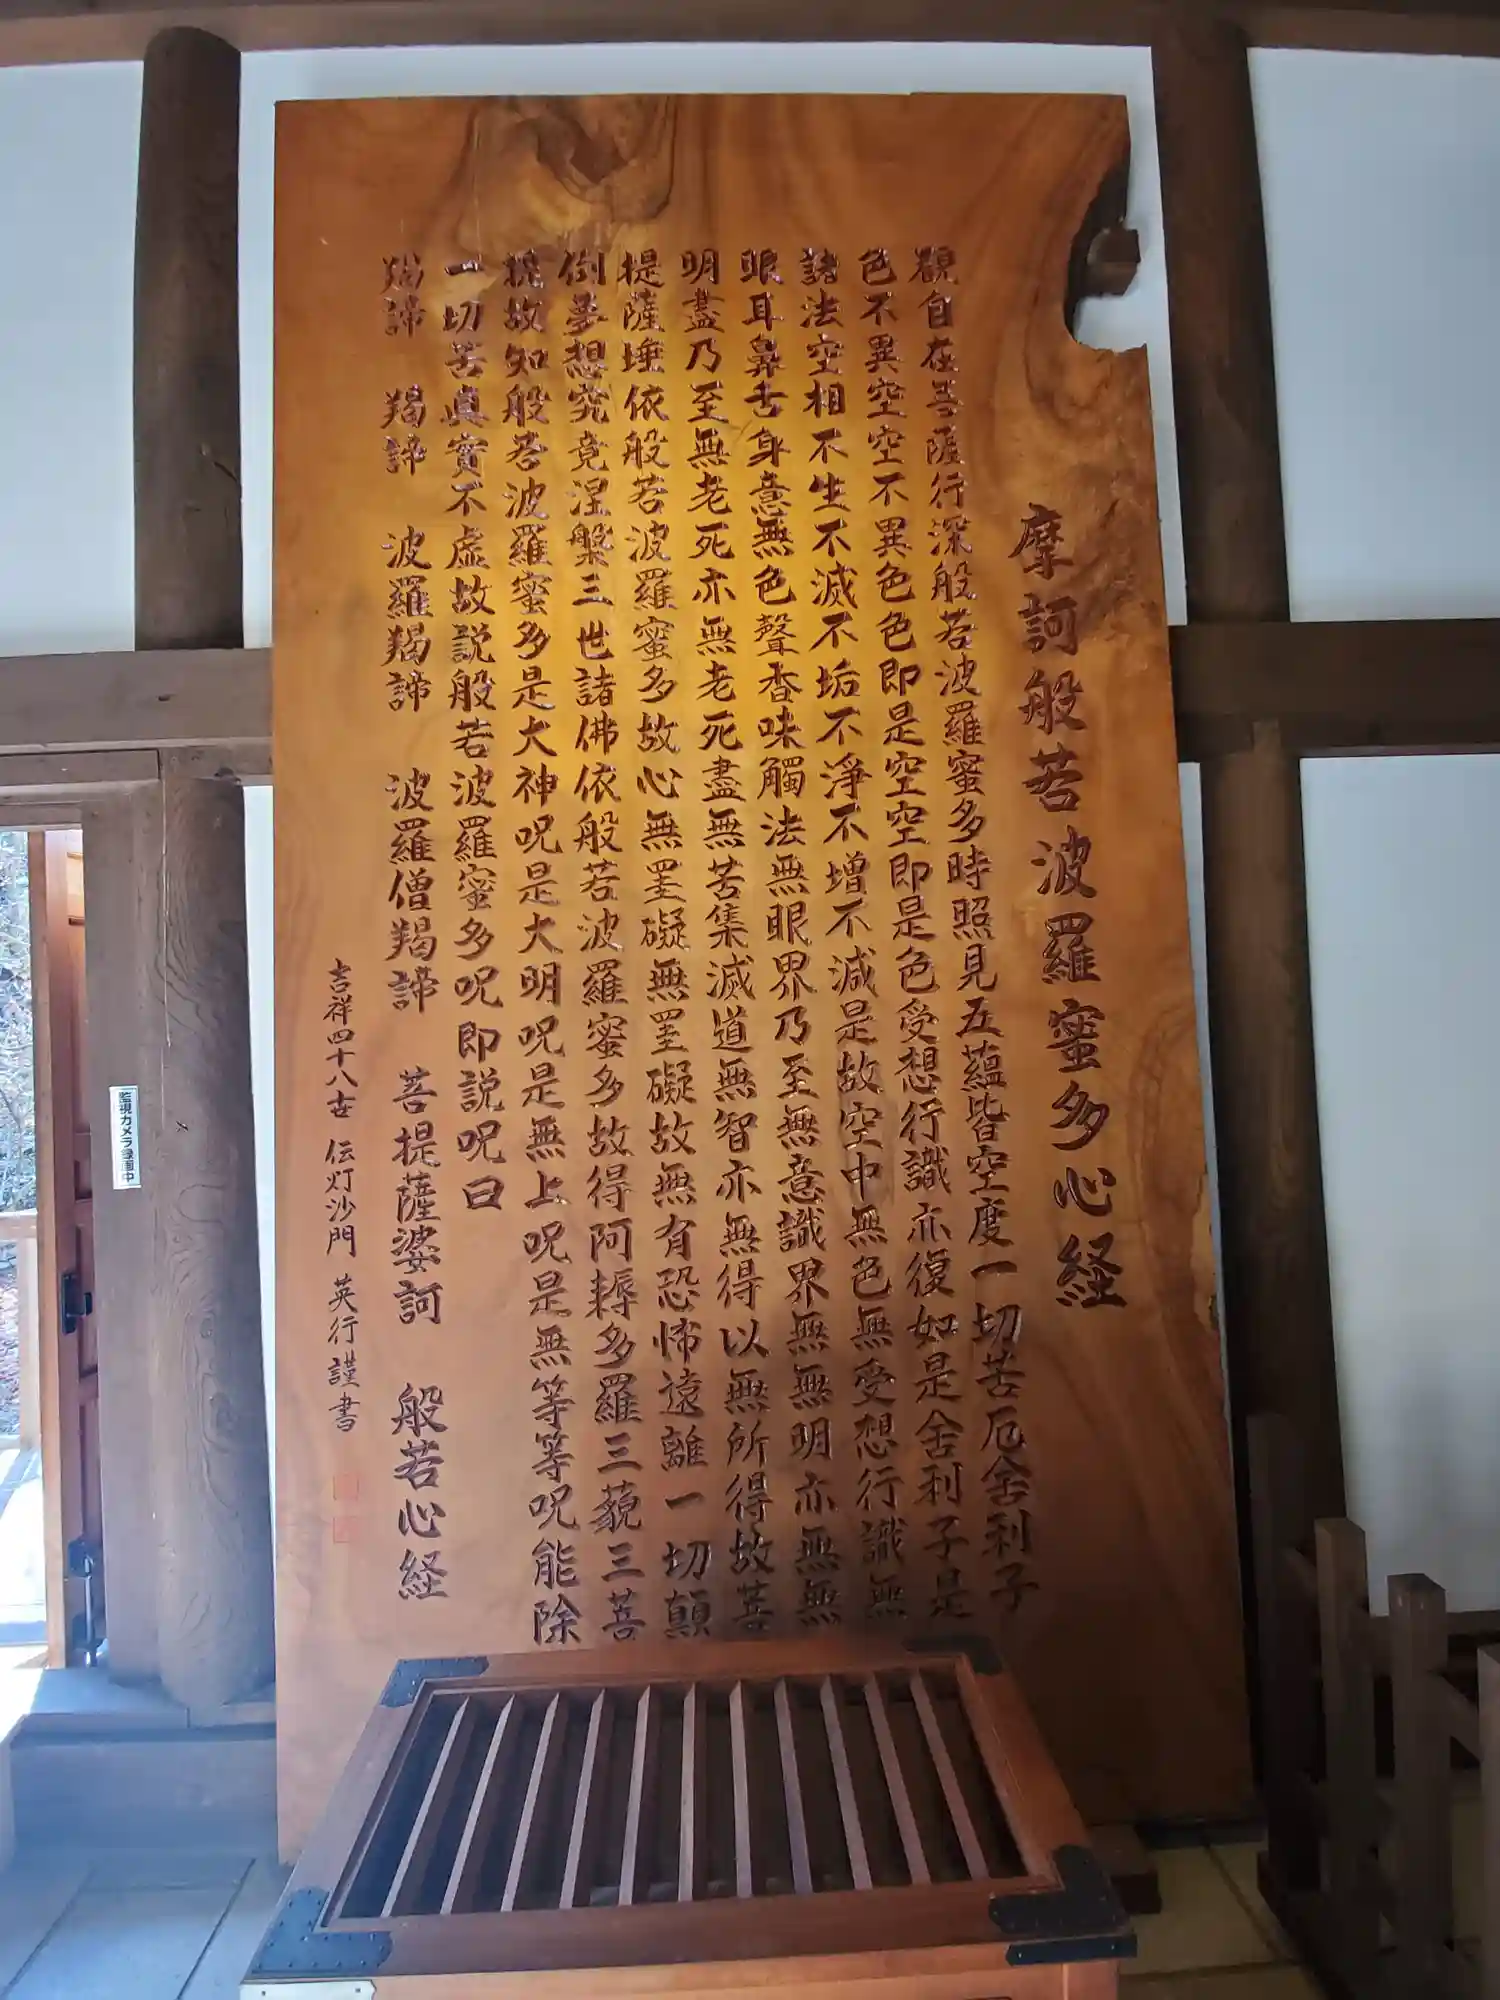 摩訶般若波羅蜜多心経
観自在菩薩行深般若波羅蜜多時照見五蘊皆空度一切苦厄舍利子
色不異空空不異色色即是空空即是色受想行識亦復如是舍利子是
諸法空相不生不滅不垢不淨不增不減是故空中無色無受想行識無
眼耳鼻舌身意無色聲香味觸法無眼界乃至無意識界無無明亦無無
明盡乃至無老死亦無老死盡無苦集滅道無智亦無得以無所得故菩
提薩埵依般若波羅蜜多故心無罣礙無罣礙故無有恐怖遠離一切顛
倒夢想究竟涅槃三世諸佛依般若波羅蜜多故得阿耨多羅三藐三菩
提故知般若波羅蜜多是大神呪是大明呪是無上呪是無等等呪能除
一切苦眞實不虚故説般若波羅蜜多呪即説呪曰
羯諦 羯諦 波羅羯諦 波羅僧羯諦 菩提薩婆訶 般若心経
吉祥四十八世 伝灯沙門 英行謹書
監視カメラ録画中